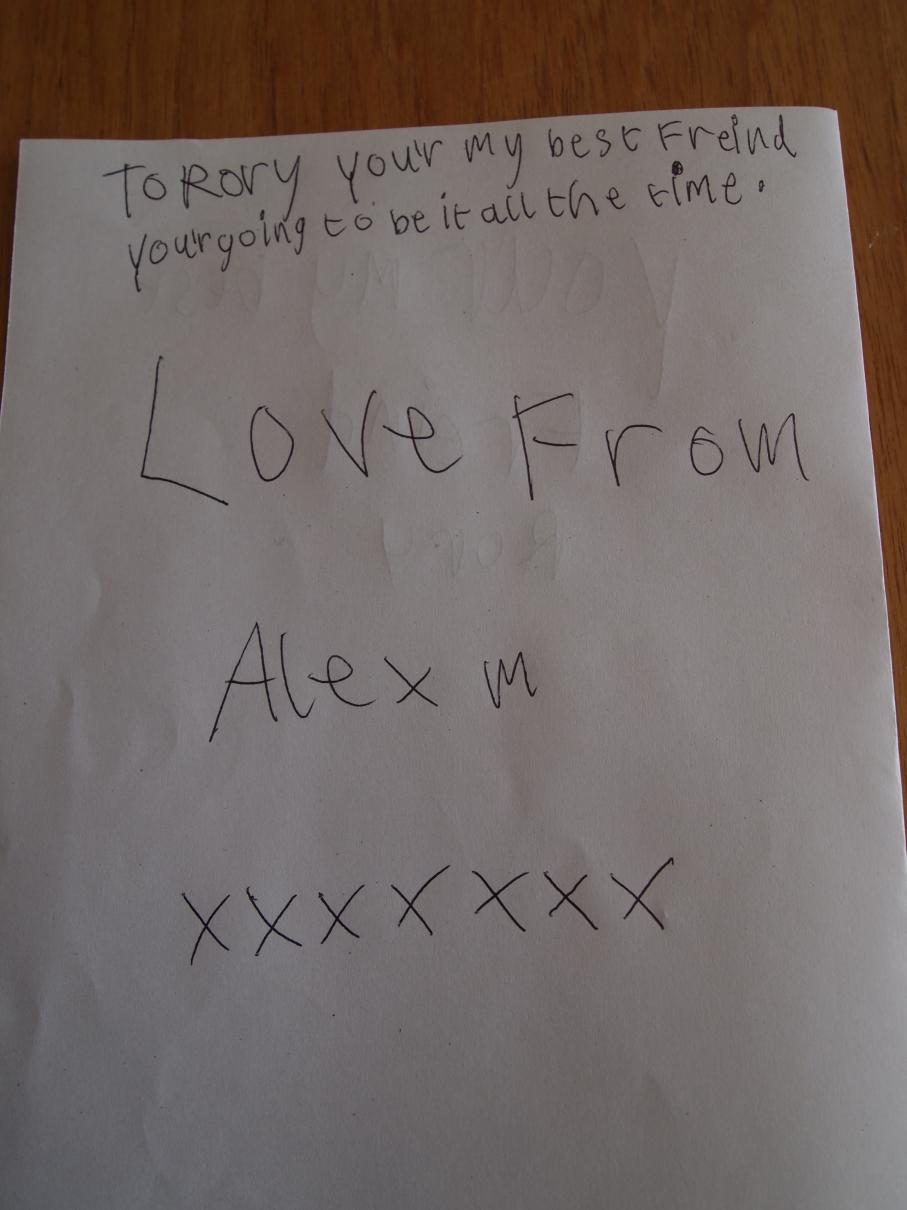 To Rory you'r my best Freind
you'r going to be it all the time.
Love From
Alex m
xxxxxxx